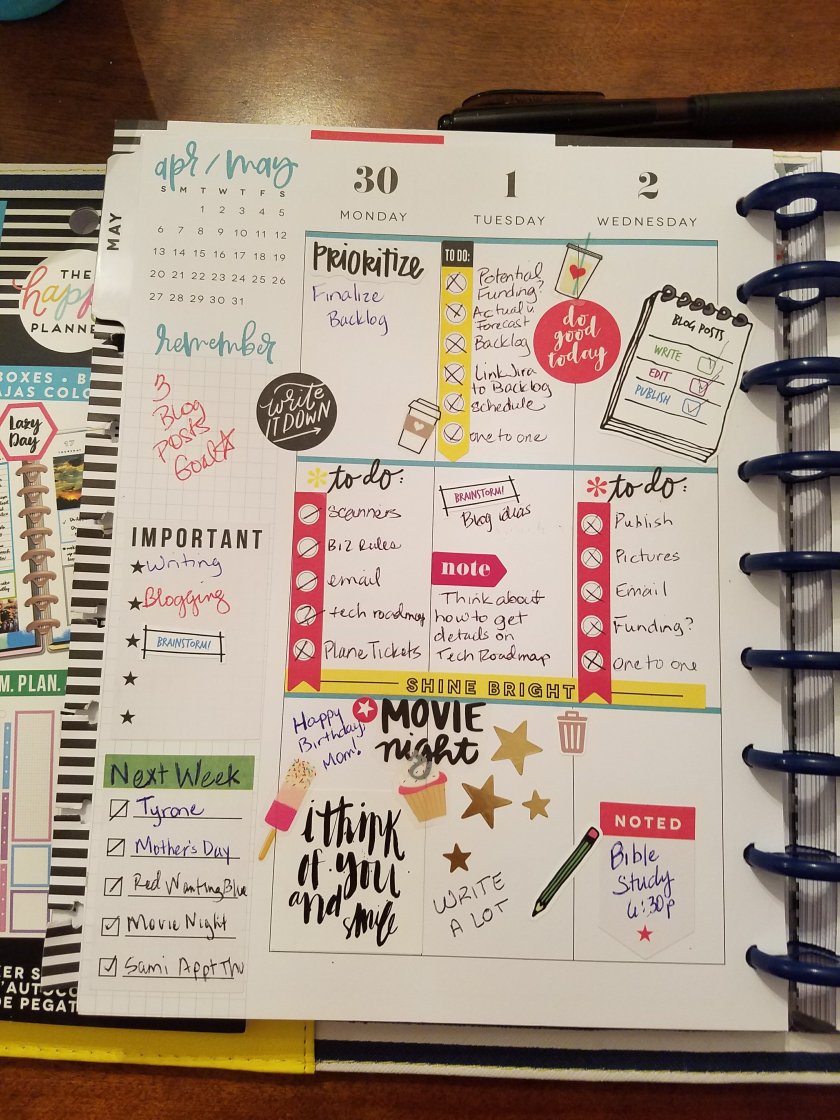 apr/may
S M T W T F S
1 2 3 4 5
6 7 8 9 10 11 12
13 14 15 16 17 18 19
20 21 22 23 24 25 26
27 28 29 30 31
MAY
remember
3
Blog
Posts
Goal
IMPORTANT
Writing
Blogging
BRAINSTORM!
Next Week
Tyrone
Mother's Day
Red Wanting Blue
Movie Night
Sami Appt Thu
30
MONDAY
1
TUESDAY
2
WEDNESDAY
PRIORITIZE
Finalize
Backlog
write
IT DOWN
TO DO:
Potential
Funding?
Actual v.
Forecast
Backlog
Link Jira
to Backlog
Schedule
one to one
do
good
today
BLOG POSTS
WRITE
EDIT
PUBLISH
to do:
Scanners
Biz Rules
email
tech roadmap
Plane Tickets
BRAINSTORM!
Blog ideas
note
Think about
how to get
details on
Tech Roadmap
to do:
Publish
Pictures
Email
Funding?
one to one
SHINE BRIGHT
Happy
Birthday
Mom!
MOVIE
night
i think
of you
and
smile
WRITE
A LOT
NOTED
Bible
Study
6:30p
THE
happy
PLANNE
BOXES • B
AJAS COLO
Lazy
Day
M. PLAN.
KER S
'AUTOCO
DE PEGAT